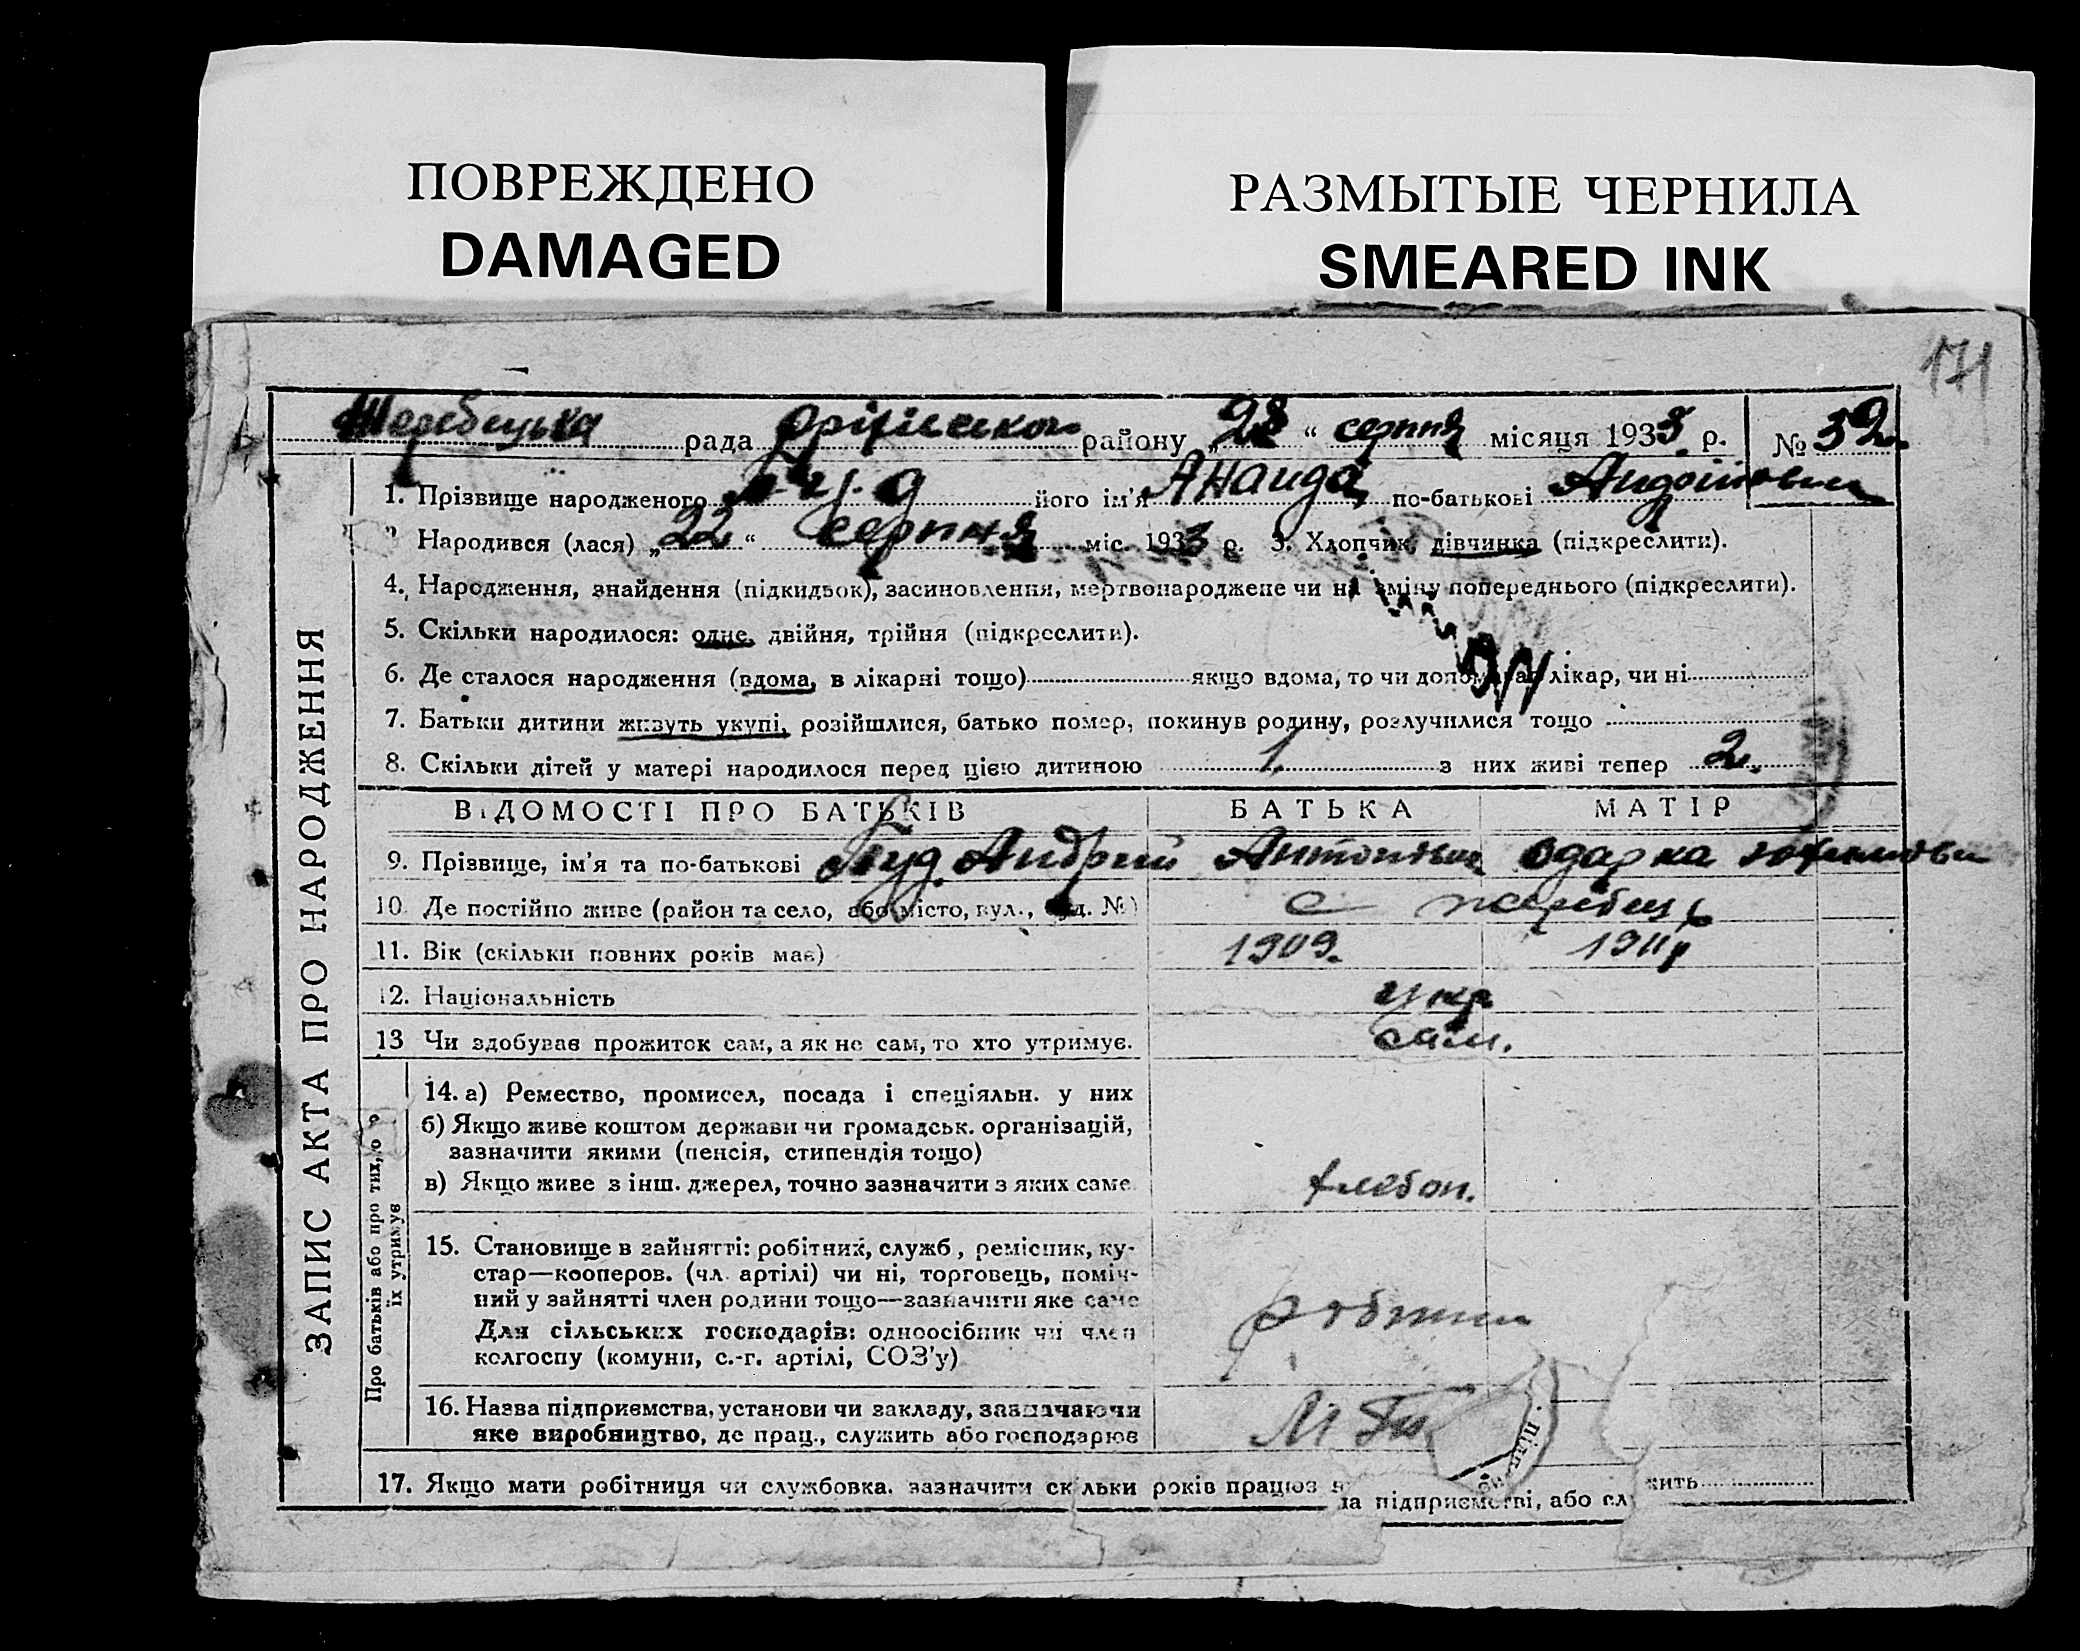 ПОВРЕЖДЕНО
DAMAGED
РАЗМЫТЫЕ ЧЕРНИЛА
SMEARED INK
171
Жеребецька рада району „28“ серпня місяця 1933 р. № 32
1. Прізвище народженого його ім'я по-батькові
Народився (лася) „22“ серпня міс. 1933 р. 3. Хлопчик, дівчинка (підкреслити).
4. Народження, знайдення (підкидьок), засиновлення, мертвонароджене чи на зміну попереднього (підкреслити).
5. Скільки народилося: одне, двійня, трійня (підкреслити).
6. Де сталося народження (вдома, в лікарні тощо) якщо вдома, то чи допомагав лікар, чи ні
7. Батьки дитини живуть укупі, розійшлися, батько помер, покинув родину, розлучилися тощо
8. Скільки дітей у матері народилося перед цією дитиною 1 з них живі тепер 2.
ВІДОМОСТІ ПРО БАТЬКІВ БАТЬКА МАТІР
9. Прізвище, ім'я та по-батькові Андрий Антонович Одарка
10. Де постійно живе (район та село, або місто, вул., буд. №) с жеребець
11. Вік (скільки повних років має) 1909. 1911р
12. Національність укр
13 Чи здобував прожиток сам, а як не сам, то хто утримує. сам.
14. а) Ремество, промисел, посада і спеціяльн. у них
б) Якщо живе коштом держави чи громадськ. організацій,
зазначити якими (пенсія, стипендія тощо)
в) Якщо живе з інш. джерел, точно зазначити з яких саме хлебоп.
15. Становище в зайнятті: робітник, служб, ремісник, ку-
стар—кооперов. (чл. артілі) чи ні, торговець, поміч-
ний у зайнятті член родини тощо—зазначити яке саме
Для сільських господарів: одноосібник чи член
колгоспу (комуни, с.-г. артілі, СОЗ'у)
16. Назва підприємства, установи чи закладу, зазначаючи
яке виробництво, де прац., служить або господарює
17. Якщо мати робітниця чи службовка, зазначити скільки років працює
на підприємстві, або
жить
ЗАПИС АКТА ПРО НАРОДЖЕННЯ
Про батьків або про тих, хто
їх утримує